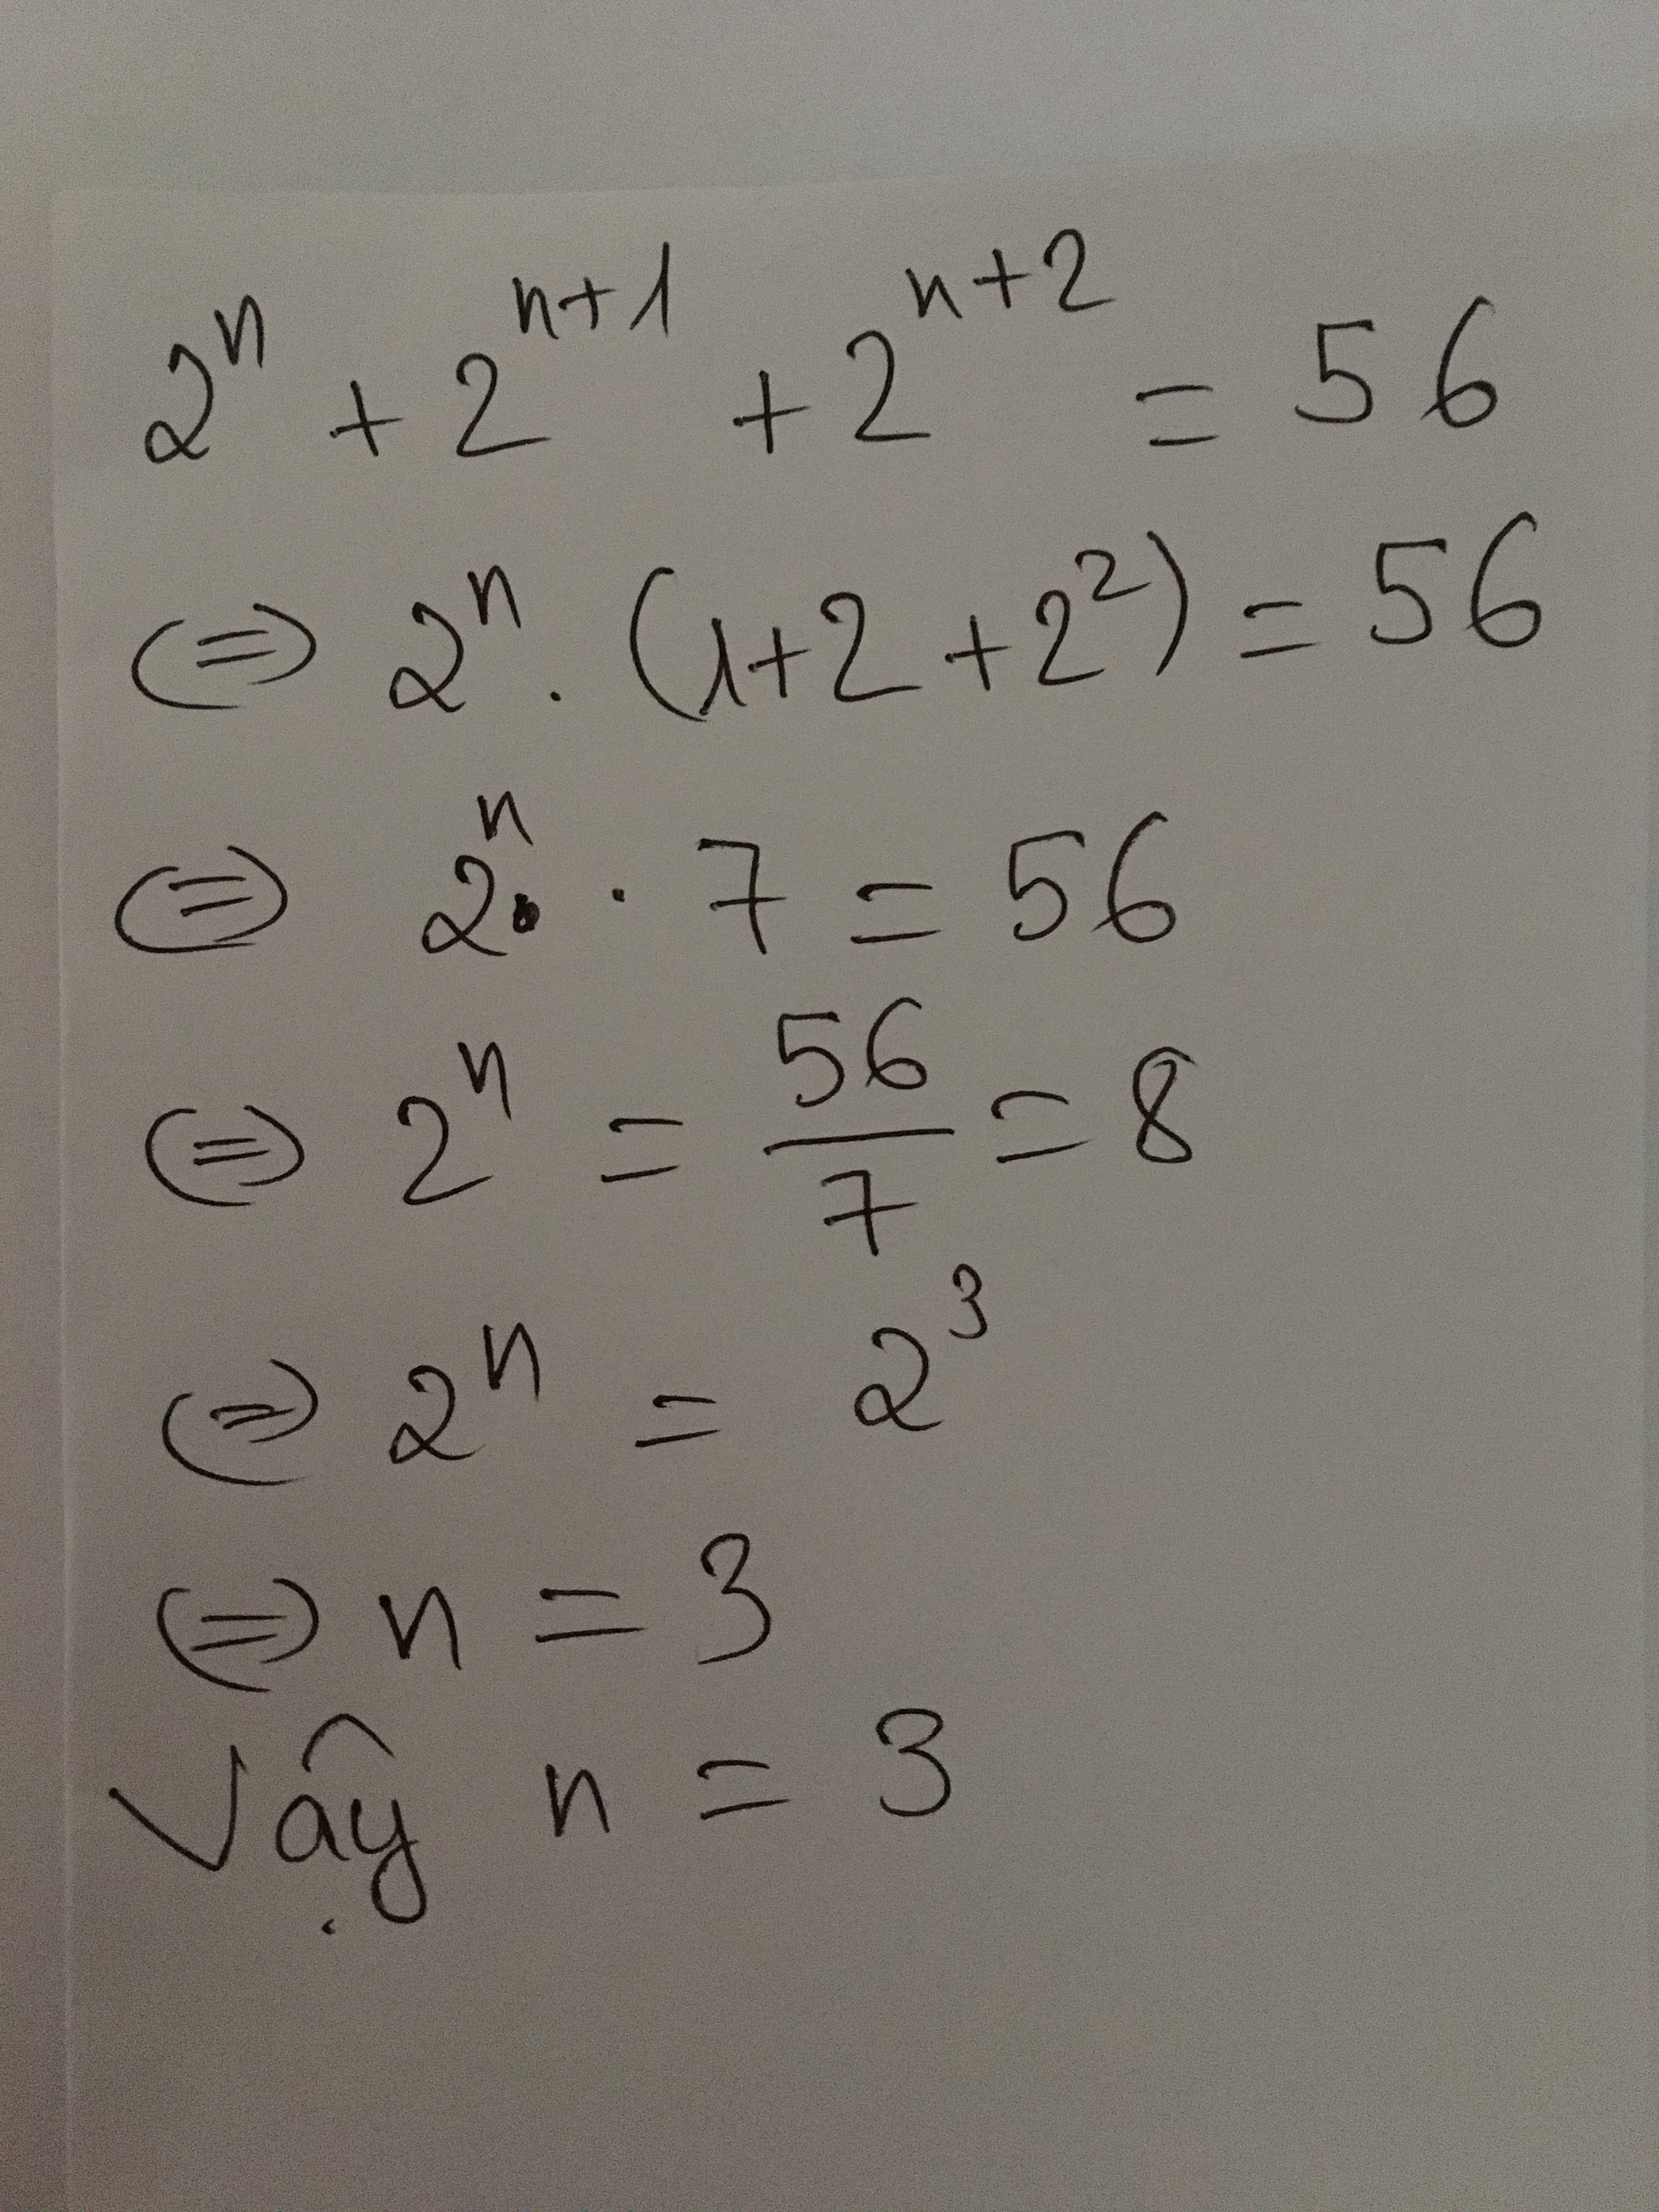 2ⁿ + 2ⁿ⁺¹ + 2ⁿ⁺² = 56
⇔ 2ⁿ . (1+2+2²) = 56
⇔ 2ⁿ . 7 = 56
⇔ 2ⁿ = 56/7 = 8
⇔ 2ⁿ = 2³
⇔ n = 3
Vậy n = 3